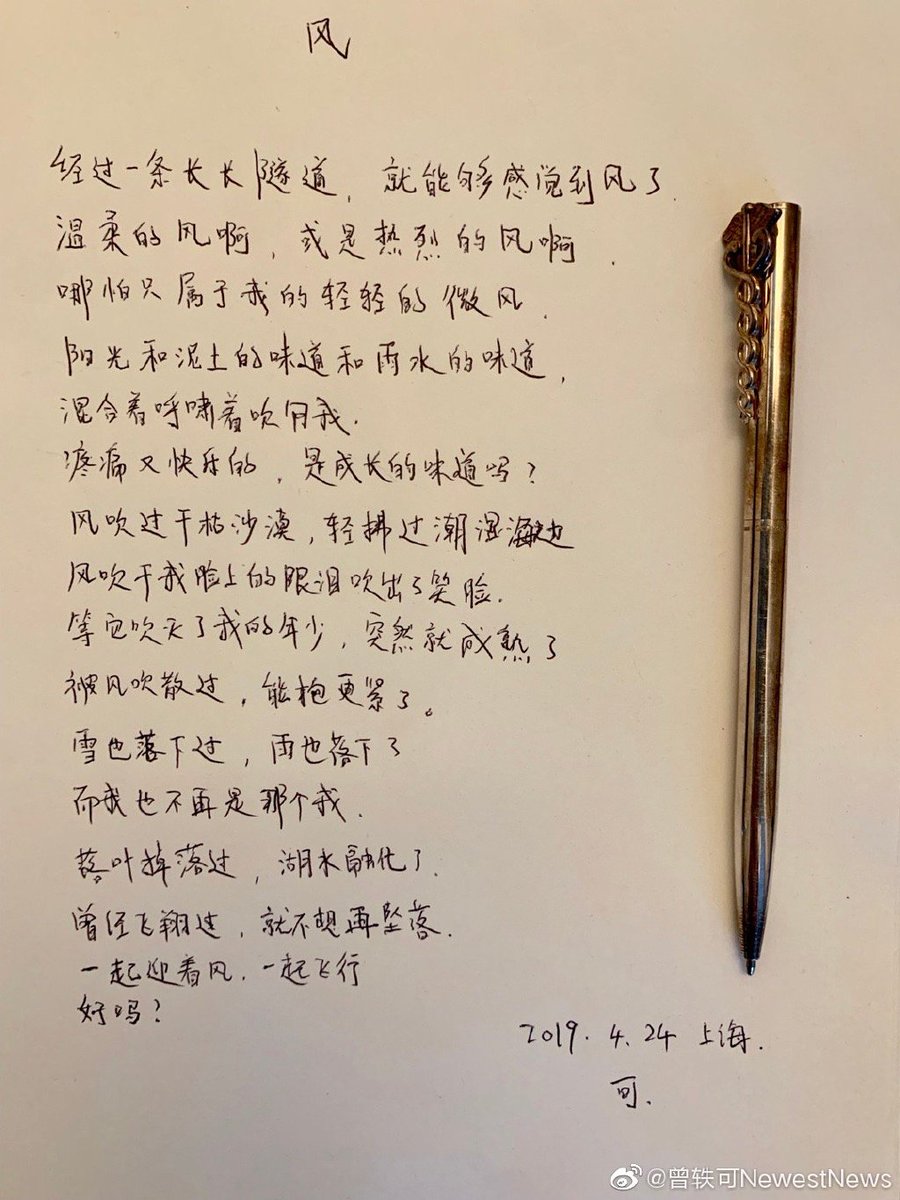 风
经过一条长长隧道，就能够感觉到风了.
温柔的风啊，或是热烈的风啊.
哪怕只属于我的轻轻的微风.
阳光和泥土的味道和雨水的味道，
混合着呼啸着吹向我.
疼痛又快乐的，是成长的味道吗？
风吹过干枯沙漠，轻拂过潮湿海边
风吹干我脸上的眼泪吹出了笑脸.
等它吹灭了我的年少，突然就成熟了
被风吹散过，能抱更紧了。
雪也落下过，雨也落下了
而我也不再是那个我.
落叶掉落过，湖水融化了.
曾经飞翔过，就不想再坠落.
一起迎着风.一起飞行
好吗？
2019.4.24 上海.
可.
@曾轶可NewestNews